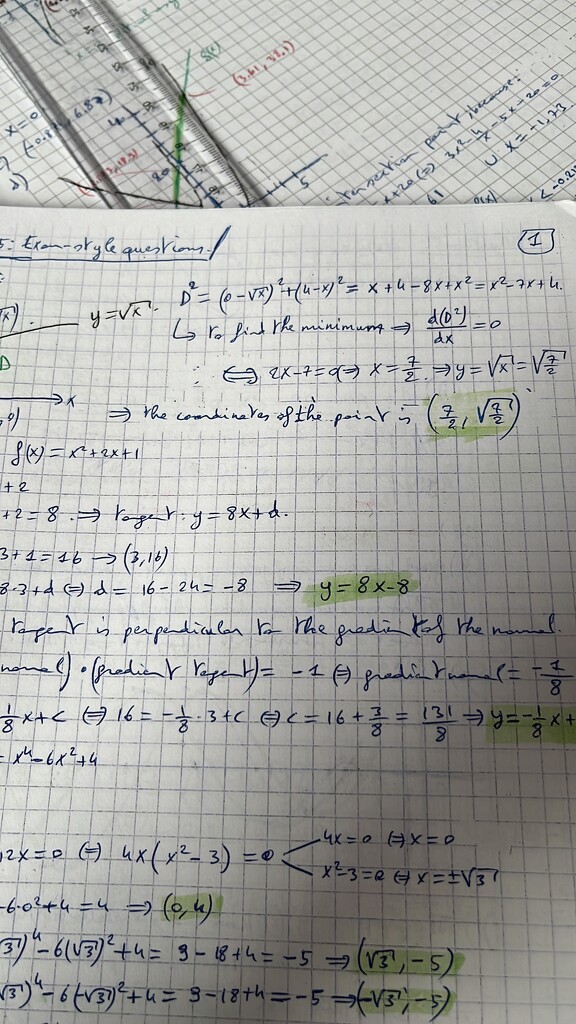 x=0
(3.61, 33.1)
5
intersection point, because:
3x²-4x-5x-20=0
x=-1,73
5: Exam-style questions.
1
y=√x.
D²=(0-√x)²+(4-x)²= x+4-8x+x²=x²-7x+4.
↳ to find the minimum ⇒ d(D²)/dx =0
⇔ 2x-7=0⇒ x=7/2. ⇒y=√x=√7/2
D
x
⇒ the coordinates of the point is (7/2, √7/2)
f(x)=x²+2x+1
+2
+2=8. ⇒ tangent: y=8x+d.
3+1=16 → (3,16)
8·3+d ⇔ d= 16-24=-8 ⇒ y=8x-8
tangent is perpendicular to the gradient of the normal.
normal)·(gradient tangent)= -1 ⇔ gradient normal= -1/8
1/8x+c ⇔ 16=-1/8·3+c ⇔ c=16+3/8 = 131/8 ⇒ y=-1/8x+
= x⁴-6x²+4
12x=0 ⇔ 4x(x²-3)=0
4x=0 ⇔ x=0
x²-3=0 ⇔ x=±√3
-6·0²+4=4 ⇒ (0,4)
√3)⁴-6(√3)²+4= 9-18+4=-5 ⇒ (√3,-5)
√3)⁴-6(-√3)²+4= 9-18+4=-5 ⇒ (-√3,-5)